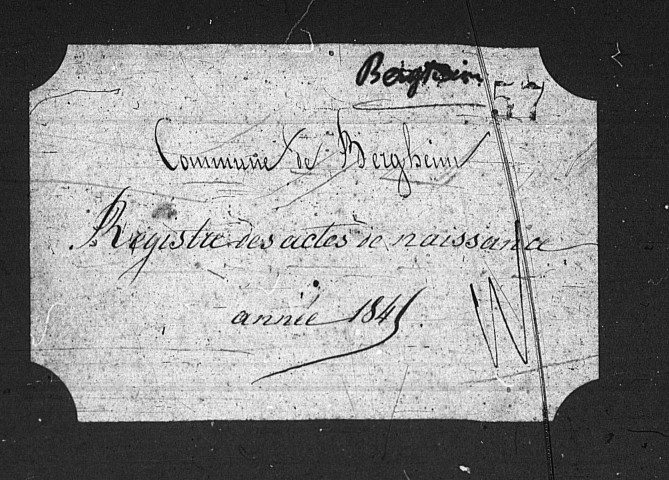 Bergheim
Commune de Bergheim
Registre des actes de naissance
année 1841
N